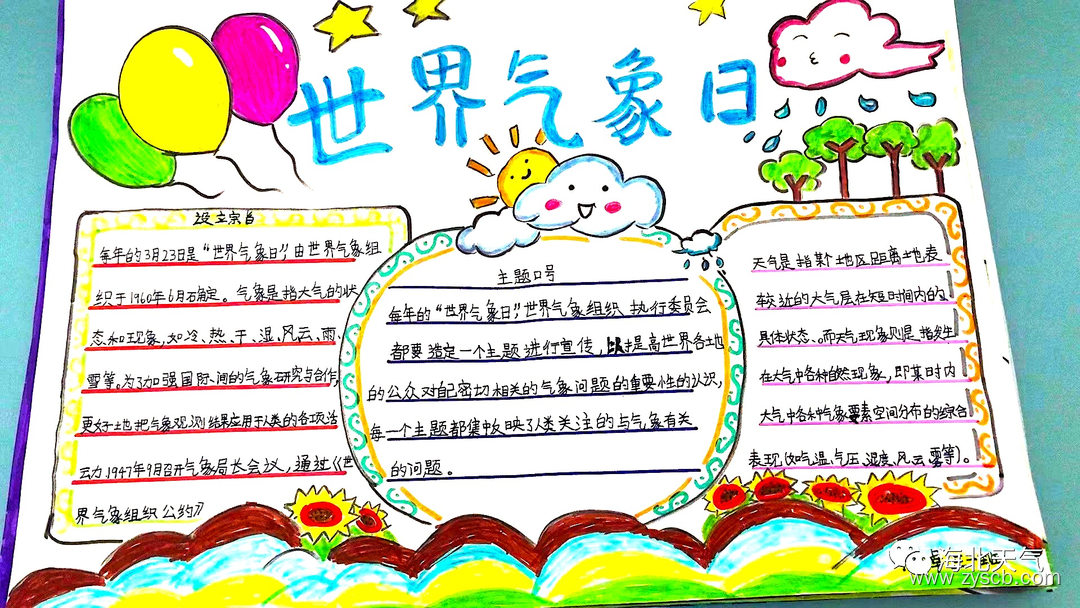 世界气象日
设立宗旨
每年的3月23日是“世界气象日”,由世界气象组
织于1960年6月确定。气象是指大气的状
态和现象,如冷、热、干、湿、风、云、雨、
雪等。为了加强国际间的气象研究与合作,
更好土地把气象观测结果应用于人类的各项活
动力1947年9月召开气象局长会议,通过《世
界气象组织公约》
主题口号
每年的“世界气象日”,世界气象组织执行委员会
都要选定一个主题进行宣传,以提高世界各地
的公众对自己密切相关的气象问题的重要性的认识,
每一个主题都集中反映了人类关注的与气象有关
的问题。
天气是指某个地区距离地表
较近的大气层在短时间内的
具体状态。而天气现象则是指发生
在大气中各种自然现象,即某时内
大气中各种气象要素空间分布的综合
表现(如气温、气压、湿度、风、云、雾等)。
海北天气
www.zyscb.com